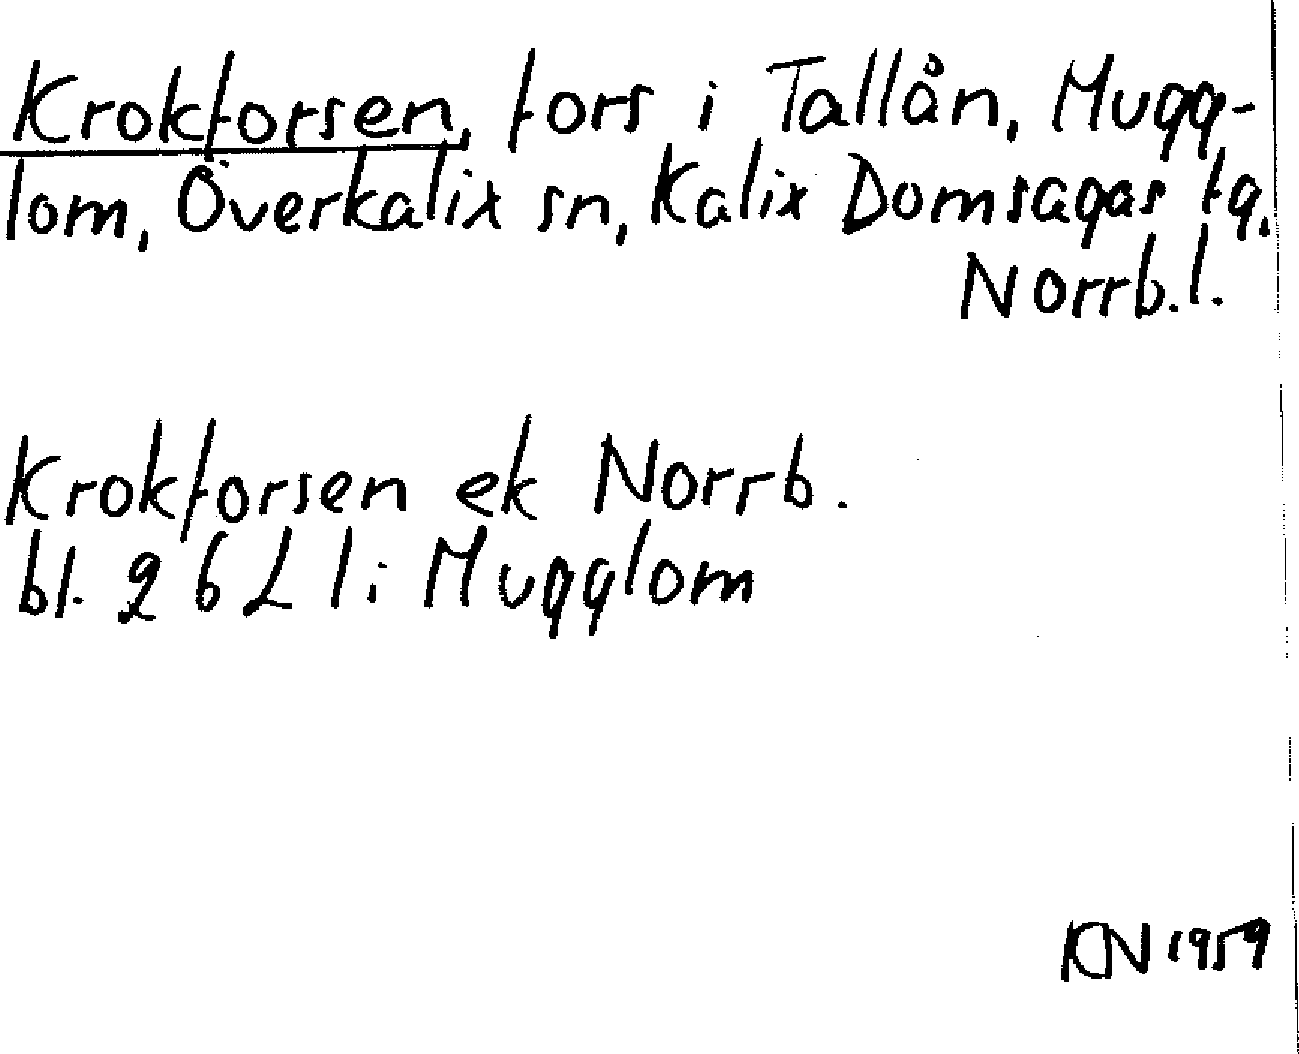 Krokforsen, fors i Tallån, Mugg-
lom, Överkalix sn, Kalix Domsagas tg.
Norrb. l.
Krokforsen ek Norrb.
bl. 26 L l: Mugglom
KN 1959